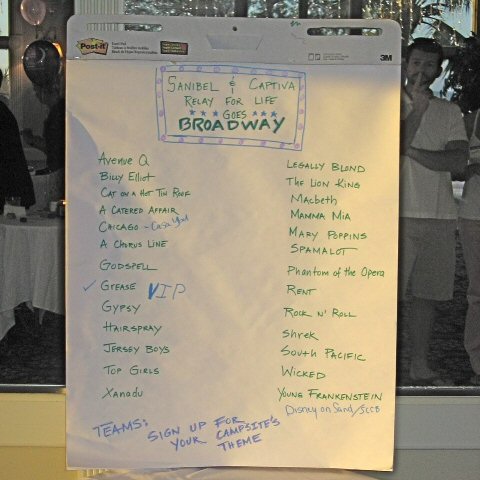 Post-it
3M
SANIBEL & CAPTIVA
RELAY FOR LIFE
GOES
BROADWAY
AVENUE Q
BILLY ELLIOT
CAT ON A HOT TIN ROOF
A CATERED AFFAIR
CHICAGO - Casa Ybel
A CHORUS LINE
GODSPELL
✓ GREASE VIP
GYPSY
HAIRSPRAY
JERSEY BOYS
TOP GIRLS
XANADU
LEGALLY BLOND
THE LION KING
MACBETH
MAMMA MIA
MARY POPPINS
SPAMALOT
PHANTOM OF THE OPERA
RENT
ROCK N' ROLL
SHREK
SOUTH PACIFIC
WICKED
YOUNG FRANKENSTEIN
Disney on Sand/SCCB
TEAMS: SIGN UP FOR
YOUR CAMPSITE'S
THEME